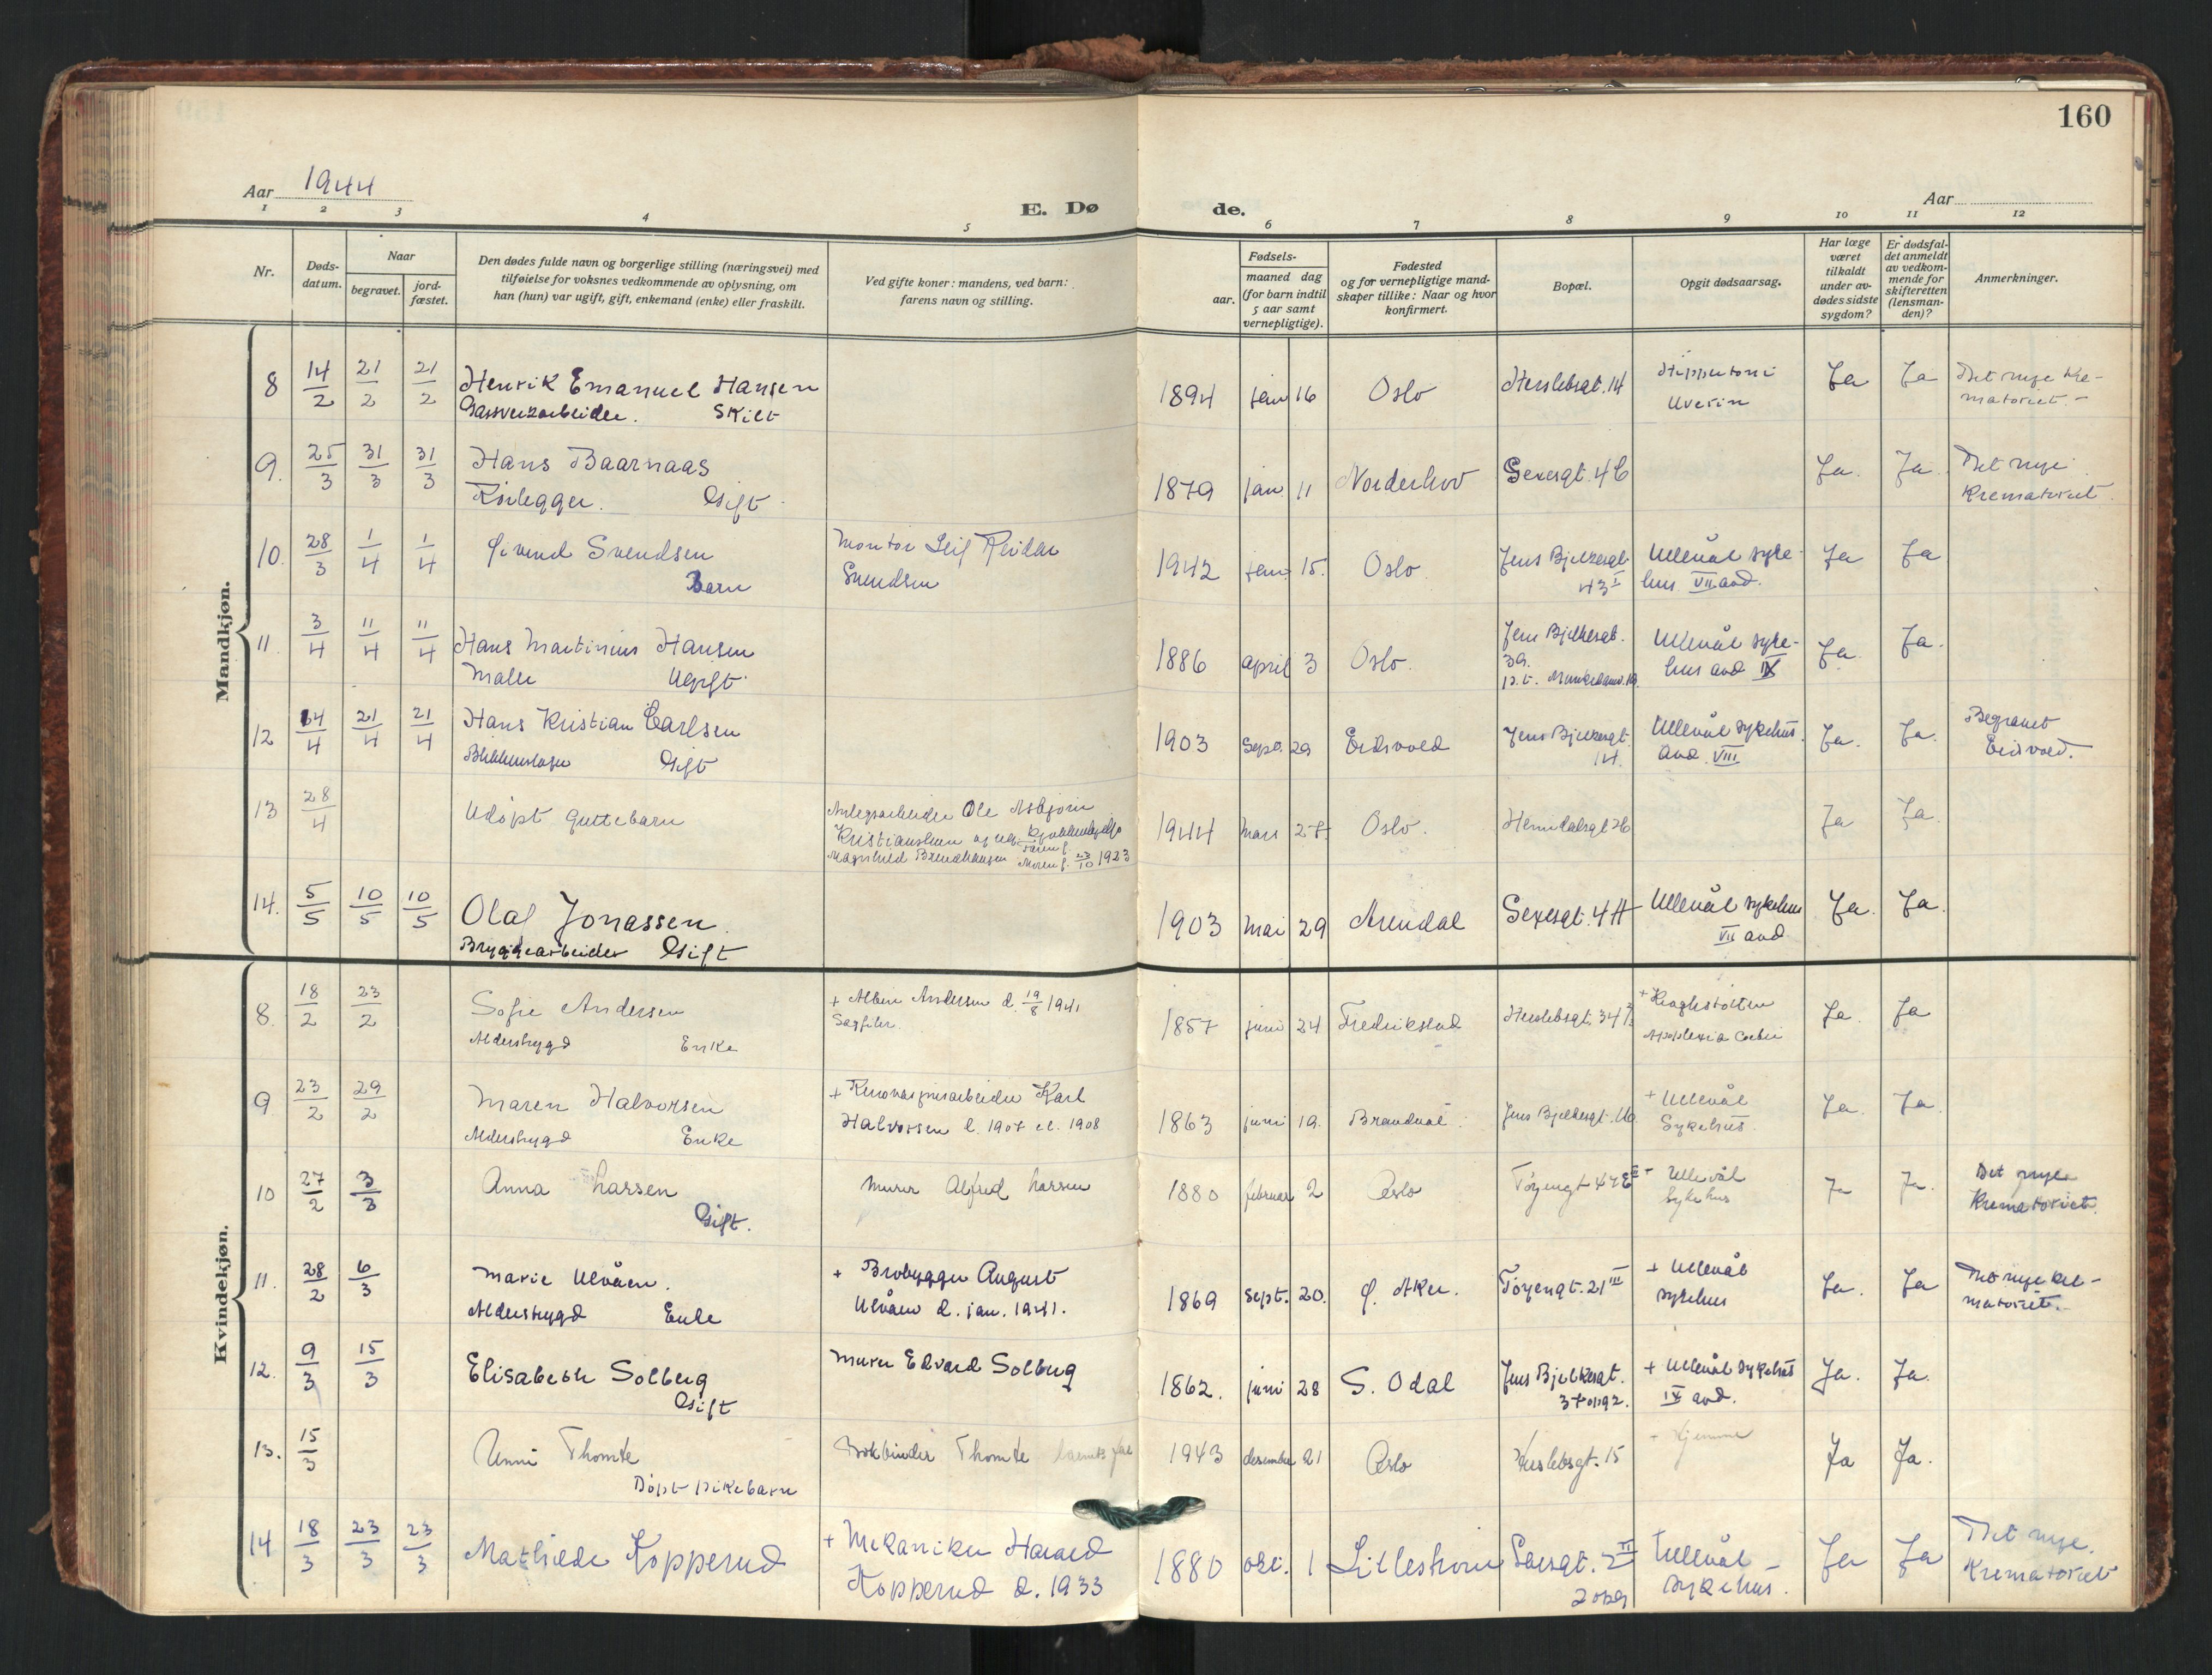 160
Aar 1944
Aar
E. Dø de.
1 2 3 4 5 6 7 8 9 10 11 12
Nr.
Døds-
datum.
Naar
begravet.
jord-
fæstet.
Den dødes fulde navn og borgerlige stilling (næringsvei) med
tilføielse for voksnes vedkommende av oplysning, om
han (hun) var ugift, gift, enkemand (enke) eller fraskilt.
Ved gifte koner: mandens, ved barn:
farens navn og stilling.
Fødsels-
aar.
maaned dag
(for barn indtil
5 aar samt
vernepligtige).
Fødested
og for vernepligtige mand-
skaper tillike: Naar og hvor
konfirmert.
Bopæl.
Opgit dødsaarsag.
Har læge
været
tilkaldt
under av-
dødes sidste
sygdom?
Er dødsfal-
det anmeldt
av vedkom-
mende for
skifteretten
(lensman-
den)?
Anmerkninger.
Mandkjøn.
8 14/2 21/2 21/2 Henrik Emanuel Hansen 1894 jan 16 Oslo Herslebsgt. 14 Ja Ja Det nye Kre-
Gassverkarbeider. Skilt matoriet.-
9. 25/3 31/3 31/3 Hans Baarnaas 1879 jan. 11 Norderhov Sexesgt. 4 C Ja. Ja. Det nye
Rørlegger. Gift. Krematoriet.
10. 28/3 1/4 1/4 Øivind Svendsen Montør Leif Reidar 1942 jan. 15. Oslo Jens Bjelkesgt. Ullevål syke- Ja Ja
Barn Svendsen 43 I hus VII avd.
11. 3/4 11/4 11/4 Hans Martinius Hansen 1886 april 3 Oslo. Jens Bjelkesgt. Ullevål syke- Ja. Ja.
Maler Ugift 39. hus avd IX
p.t. Munkedamsv. 19.
12 14/4 21/4 21/4 Hans Kristian Carlsen 1903 Sept. 29 Eidsvold Jens Bjelkesgt. Ullevål sykehus. Ja. Ja. Begravet
Blikkenslager Gift 14. avd. VIII Eidsvold.
13 28/4 Udøpt guttebarn Anlegsarbeider Ole Asbjørn 1944 mars 27 Oslo. Heimdalsgt 26 Ja Ja.
Kristiansen og ug. kjøkkenhjelp
Magnhild Brendhaugen Moren f. 23/10 1923
14. 5/5 10/5 10/5 Olaf Jonassen 1903 Mai 29 Arendal Sexesgt. 4 H Ullevål sykehus Ja. Ja.
Bryggearbeider Gift VII avd
Kvindekjøn.
8. 18/2 23/2 Sofie Andersen + Albin Andersen d. 19/8 1941 1857 juni 24 Fredrikstad Herslebsgt. 34 + Kraghstøtten Ja. Ja
Alderstrygd Enke Sagfiler. Apoplexia Cerebri
9 23/2 29/2 Maren Halvorsen + Renovasjonsarbeider Karl 1863 juni 19. Brandval. Jens Bjelkesgt. + Ullevål Ja. Ja.
Alderstrygd Enke Halvorsen d. 1907 el. 1908 Sykehus.
10 27/2 3/3 Anna Larsen Murer Alfred Larsen 1880 februar 2 Oslo Tøyengt 44 E II - Ullevål Ja Ja. Det nye
Gift. sykehus Krematoriet.
11. 28/2 6/3 Marie Ulvåen. + Brobygger August 1869 sept. 20. Ø. Aker. Tøyengt. 21 III + Ullevål Ja. Ja Det nye kre-
Alderstrygd Enke Ulvåen d. jan. 1941. sykehus matoriet.-
12. 9/3 15/3 Elisabeth Solberg Murer Edvard Solberg 1862. juni 28 S. Odal Jens Bjelkesgt. + Ullevål Sykehus Ja. Ja.
Gift 37 opg 2. IX avd.
13. 15/3 Unni Thomte Bokbinder Thomte barnets far 1943 desember 21 Oslo Herslebsgt. 15 - Hjemme Ja Ja.
Døpt pikebarn
14 18/3 23/3 23/3 Mathilde Kopperud + Mekaniker Harald 1880 okt. 1 Lillestrøm Ullevål - Ja Ja Det nye.
Kopperud d. 1933 2 opg sykehus. Krematoriet